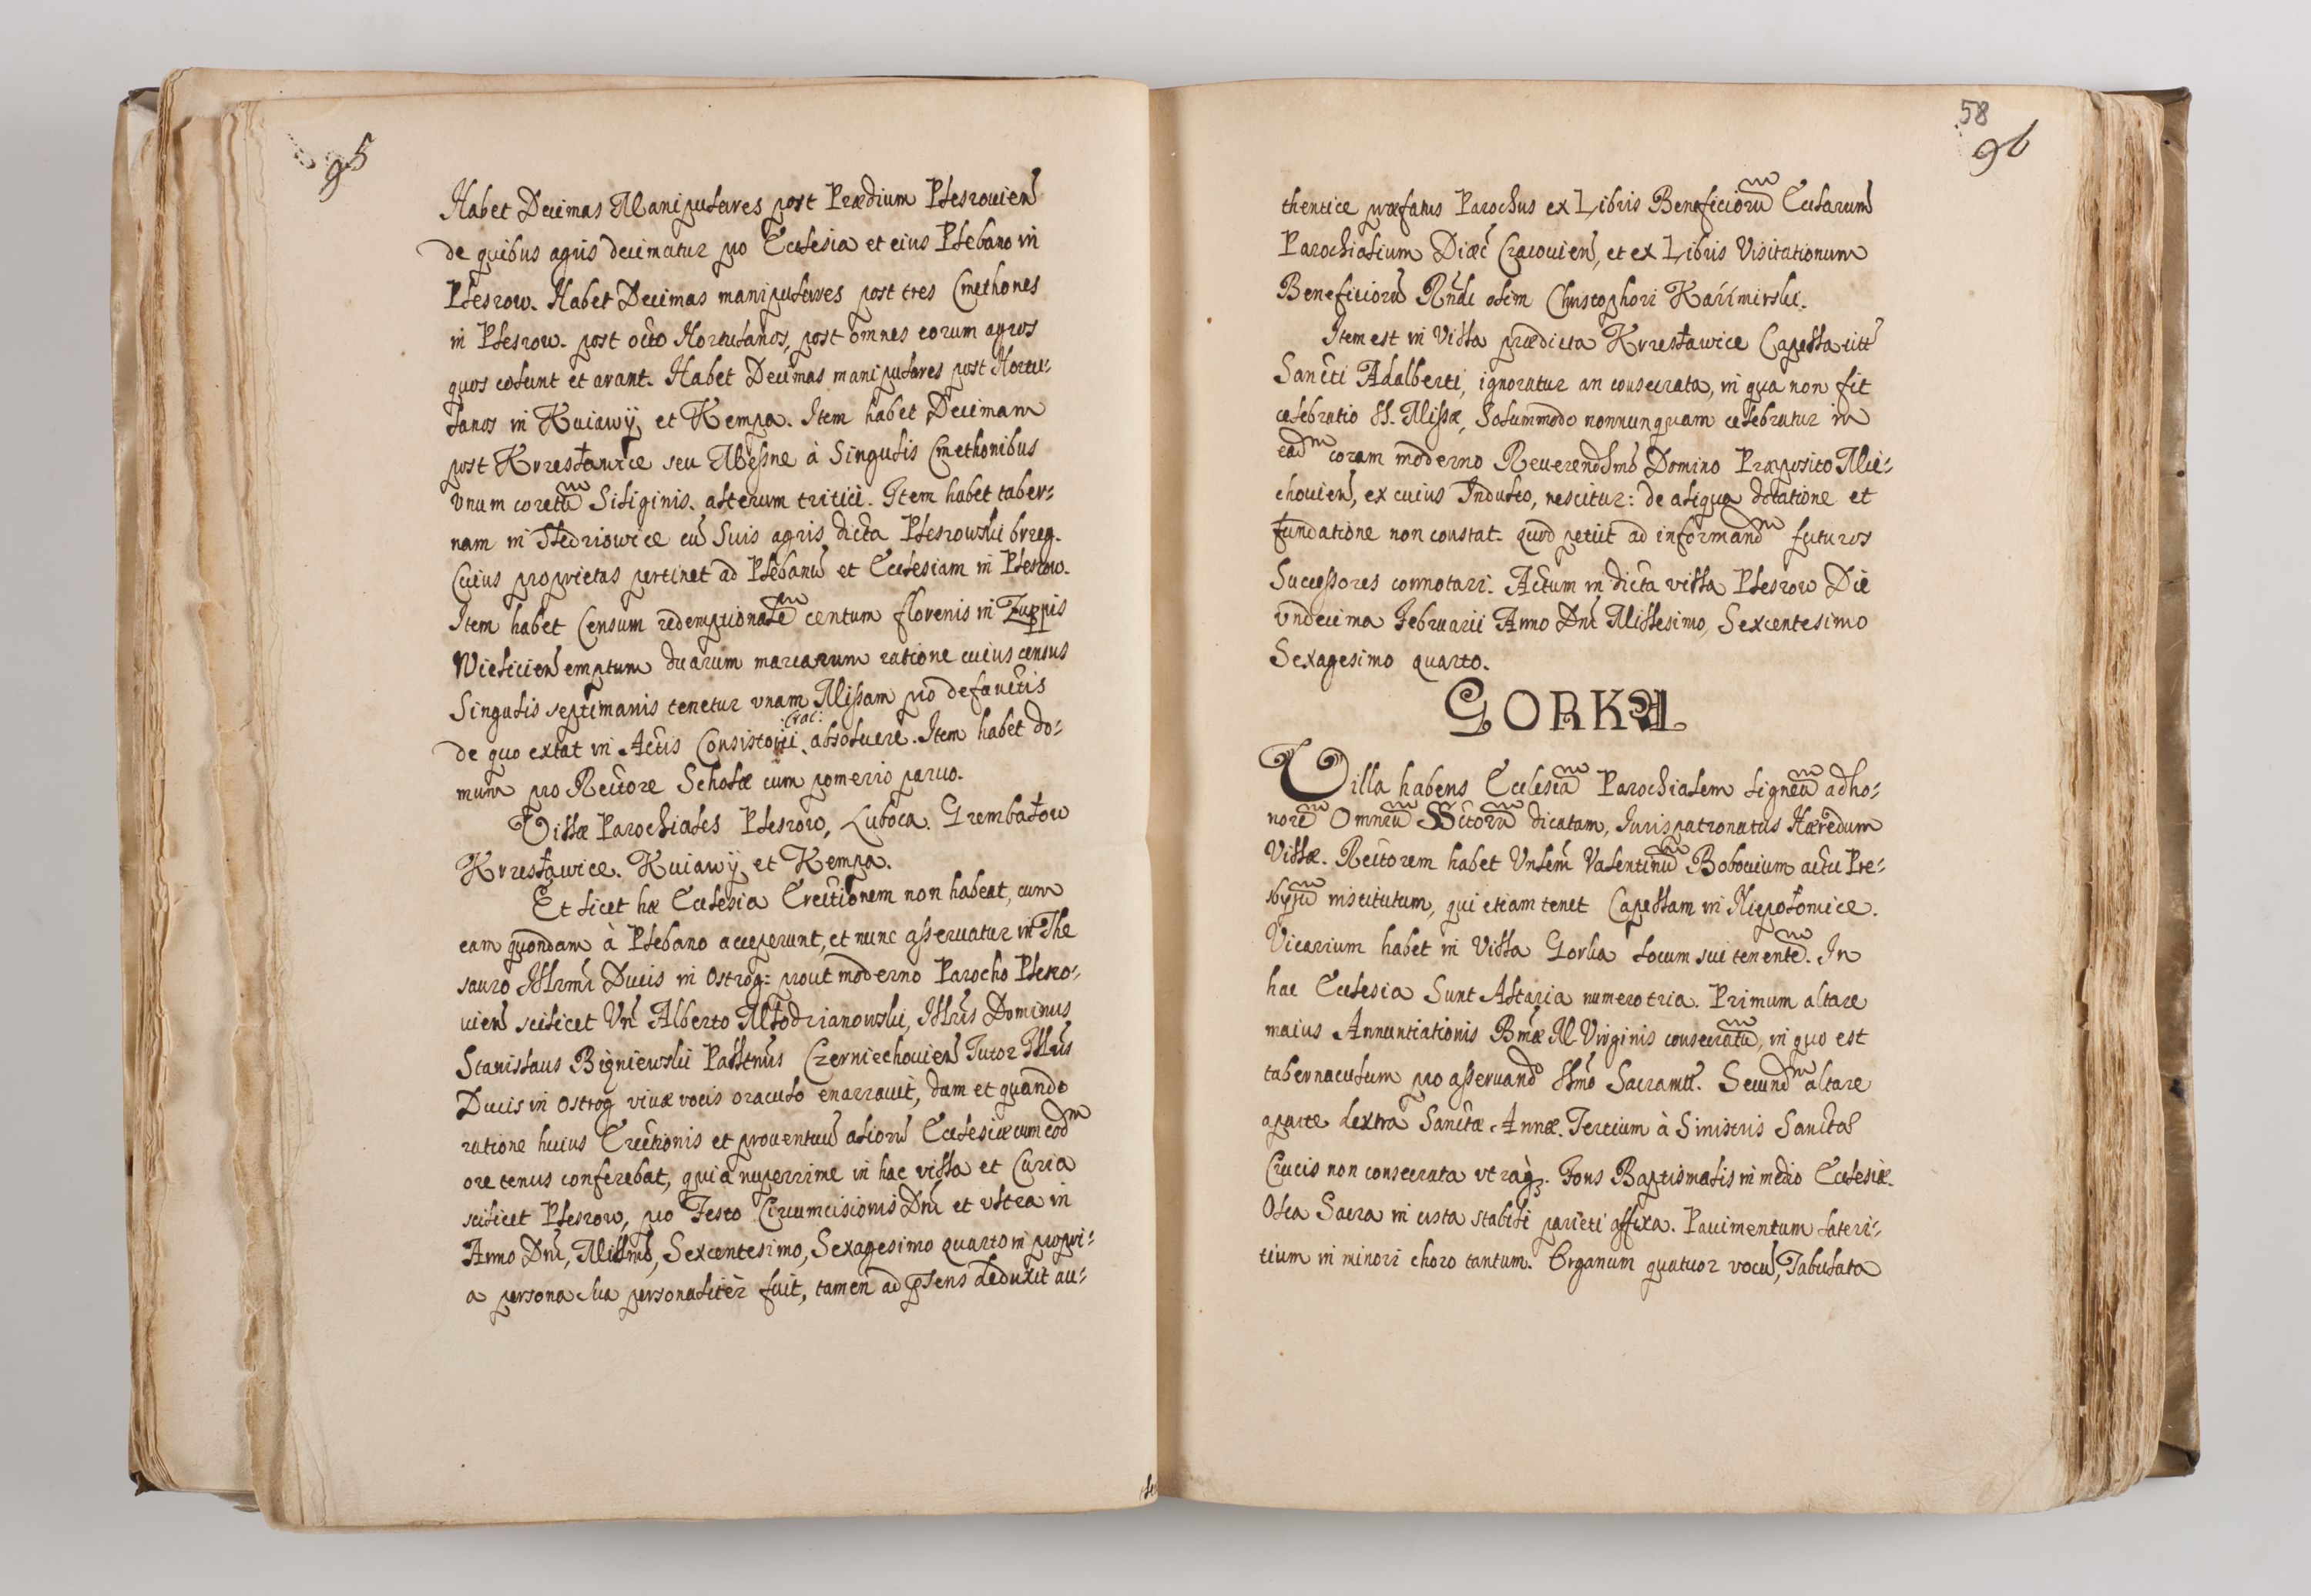 95
Habet Decimas Manipulares post Prædium Plesrouień
de quibus agris decimatur pro Ecclesia et eius Plebano in
Plesrow. Habet Decimas manipulares post tres Cmethones
in Plesrow. post octo Hortulanos, post omnes eorum agros
quos colunt et arant. Habet Decimas manipulares post Hortu-
lanos in Kuiawÿ et Kempa. Item habet Decimam
post Krzesławice seu à Singulis Cmethonibus
Vnum coretū Siliginis. alterum tritici. Item habet taber-
nam in cū Suis agris dicta Plesrowski brzeg.
Cuius proprietas pertinet ad Plebanū et Ecclesiam in Plesrow.
Item habet Censum redemptionalē centum florenis in Zuppis
Wielicień emptum duarum marcarum ratione cuius census
Singulis septimanis tenetur vnam Missam pro defunctis
de quo extat in Actis Consistorii :Crac: absoluere. Item habet do-
mum pro Rectore Scholæ cum pomerio paruo.
Villæ Parochiales Plesrow, Luboca. Grembałow
Krzesławice. Kuiawÿ et Kempa.
Et licet hæ Ecclesia Erectionem non habeat, cum
eam quondam à Plebano acceperunt, et nunc asseruatur in The
sauro Illrmi Ducis in Ostrog: prout moderno Parocho Plesro-
uień scilicet Vń Alberto Młodzianowski, Illris Dominus
Stanislaus Bigniewski Czerniechouień Tutor Illris
Ducis in Ostrog viuæ vocis oraculo enarrauit, dum et quando
ratione huius Erectionis et prouentuū aliorū Ecclesiæ cum eodm
ore tenus conferebat, quia nuperrime in hac villa et Curia
scilicet Plesrow, pro Festo Circumcisionis Dni et vltra in
Anno Dni, Millmo, Sexcentesimo, Sexagesimo quarto in propri-
a persona sua personaliter fuit, tamen ad psens deduxit au-
58
96
thentice præfatus Parochus ex Libris Beneficiorū Ecclarum
Parochialium Diæc Cracouień, et ex Libris Visitationum
Beneficiorū Rńdi olim Christophori Kazimirski.
Item est in Villa prædicta Krzesławice Capella titt
Sancti Adalberti, ignoratur an consecrata, in qua non fit
celebratio SS. Missæ, Solummodo nonnunquam celebratur in
eadm coram moderno Reuerendssmo Domino Præposito Mie-
chouień, ex cuius Indulto, nescitur: de aliqua dotatione et
fundatione non constat. quod petiit ad informandm futuros
Successores connotari. Actum in dicta villa Plesrow Die
vndecima Februarii Anno Dni Millesimo, Sexcentesimo
Sexagesimo quarto.
GORKA
Villa habens Ecclesiā Parochialem ligneā ad ho-
norē Omniū SSctorū dicatam, Iurispatronatus Hæredum
Villæ. Rectorem habet Vnlem Valentinū Bobouium actu Pre-
sbyterū institutum, qui etiam tenet Capellam in Niepołomice.
Vicarium habet in Villa Gorka locum sui tenentē. In
hac Ecclesia Sunt Altaria numero tria. Primum altare
maius Annuntiationis Bmæ M. Virginis consecratū, in quo est
tabernaculum pro asseruando SSmo Sacramto. Secundm altare
a parte dextra Sanctæ Annæ. Tertium à Sinistris Sanctæ
Crucis non consecrata vtraq3. Fons Baptismalis in medio Ecclesiæ.
Olea Sacra in cista stabili parieti affixa. Pauimentum lateri-
tium in minori choro tantum. Organum quatuor vocū, Tabulata